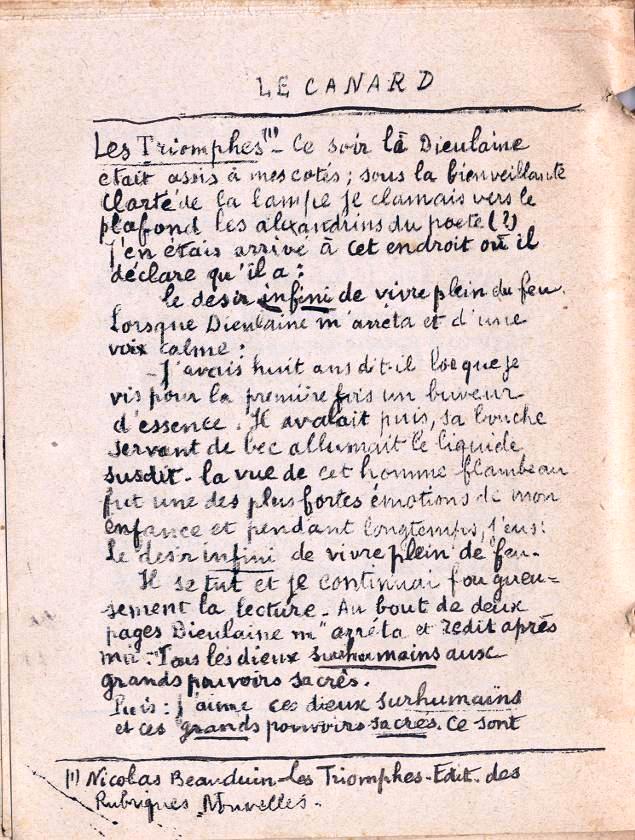 LE CANARD
Les Triomphes(1)- Ce soir là Dieulaine
était assis à mes cotés; sous la bienveillante
Clarté de la lampe je clamais vers le
plafond les alexandrins du poete (?)
J'en étais arrivé à cet endroit où il
déclare qu'il a:
le desir infini de vivre plein du feu.
Lorsque Dieulaine m'arrêta et d'une
voix calme:
- J'avais huit ans dit-il lorque je
vis pour la première fois un buveur
d'essence. Il avalait puis, sa bouche
servant de bec allumait le liquide
susdit. la vue de cet homme flambeau
fut une des plus fortes émotions de mon
enfance et pendant longtemps, j'eus:
Le desir infini de vivre plein de feu.
Il se tut et je continuai fougueu=
sement la lecture. Au bout de deux
pages Dieulaine m'arrêta et redit après
moi: "Tous les dieux surhumains aux
grands pouvoirs sacrés.
Puis: J'aime ces dieux surhumains
et ces grands pouvoirs sacrés. Ce sont
(1) Nicolas Beauduin-les Triomphes-Edit. des
Rubriques Nouvelles.